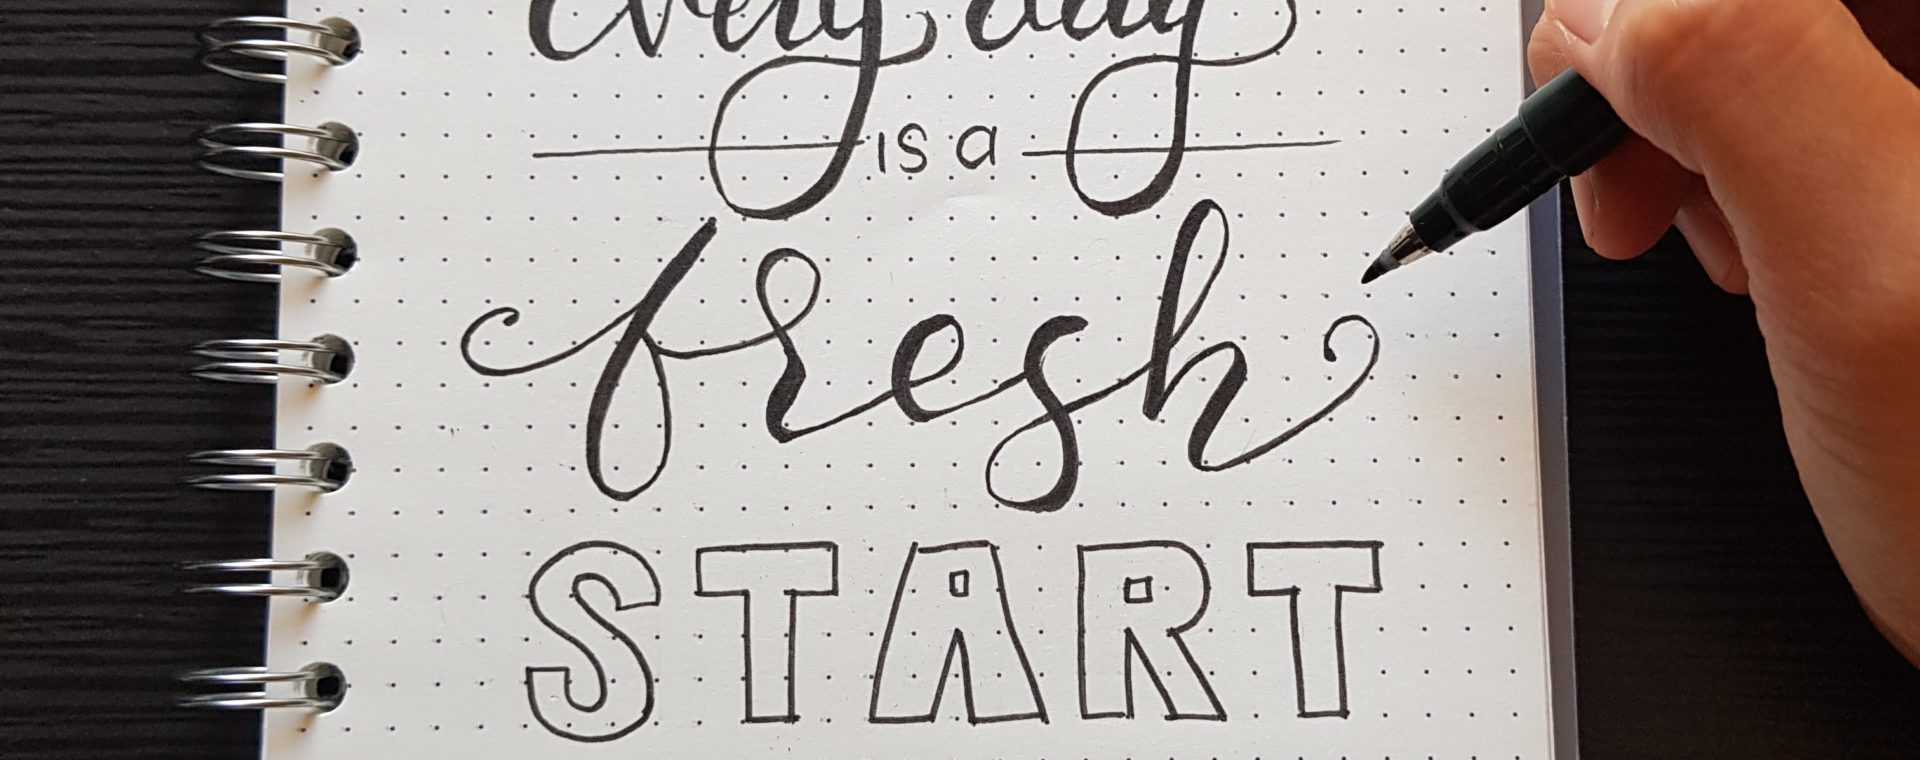 every day
is a
fresh
START